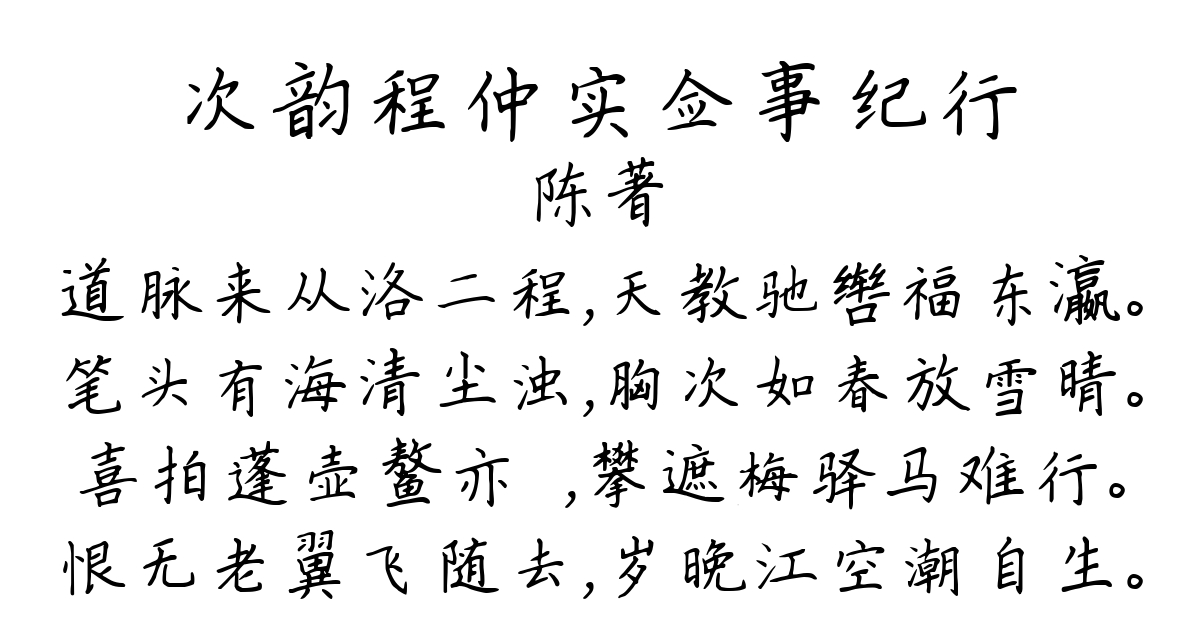 次韵程仲实佥事纪行
陈著
道脉来从洛二程,天教驰辔福东瀛。
笔头有海清尘浊,胸次如春放雪晴。
喜拍蓬壶鳌亦 ,攀遮梅驿马难行。
恨无老翼飞随去,岁晚江空潮自生。